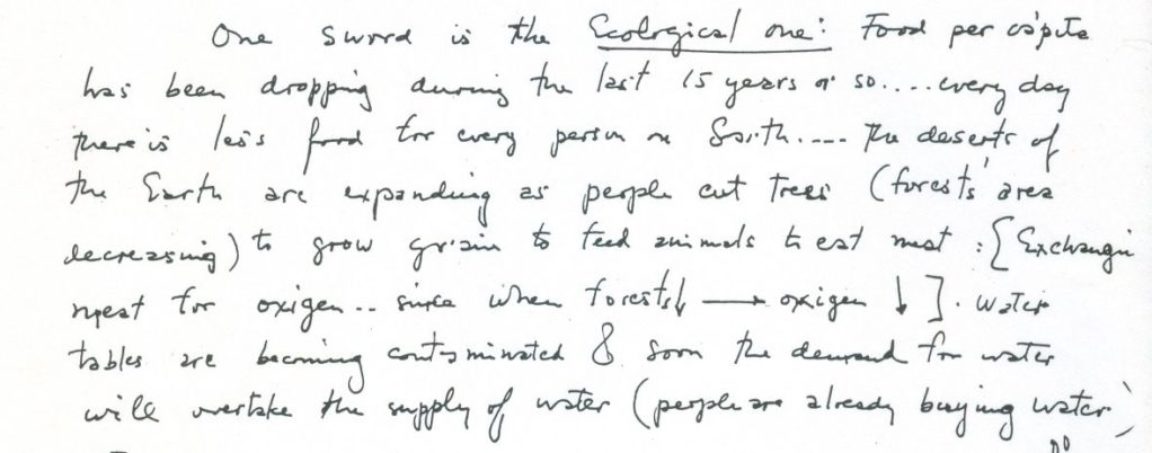 One sword is the Ecological one: Food per cápita
has been dropping during the last 15 years or so.... every day
there is less food for every person on Earth..... The deserts of
the Earth are expanding as people cut trees (forests' area
decreasing) to grow grain to feed animals to eat meat : [Exchangin
meat for oxigen .. since when forests↓ → oxigen ↓]. Water
tables are becoming contaminated & soon the demand for water
will overtake the supply of water (people are already buying water)